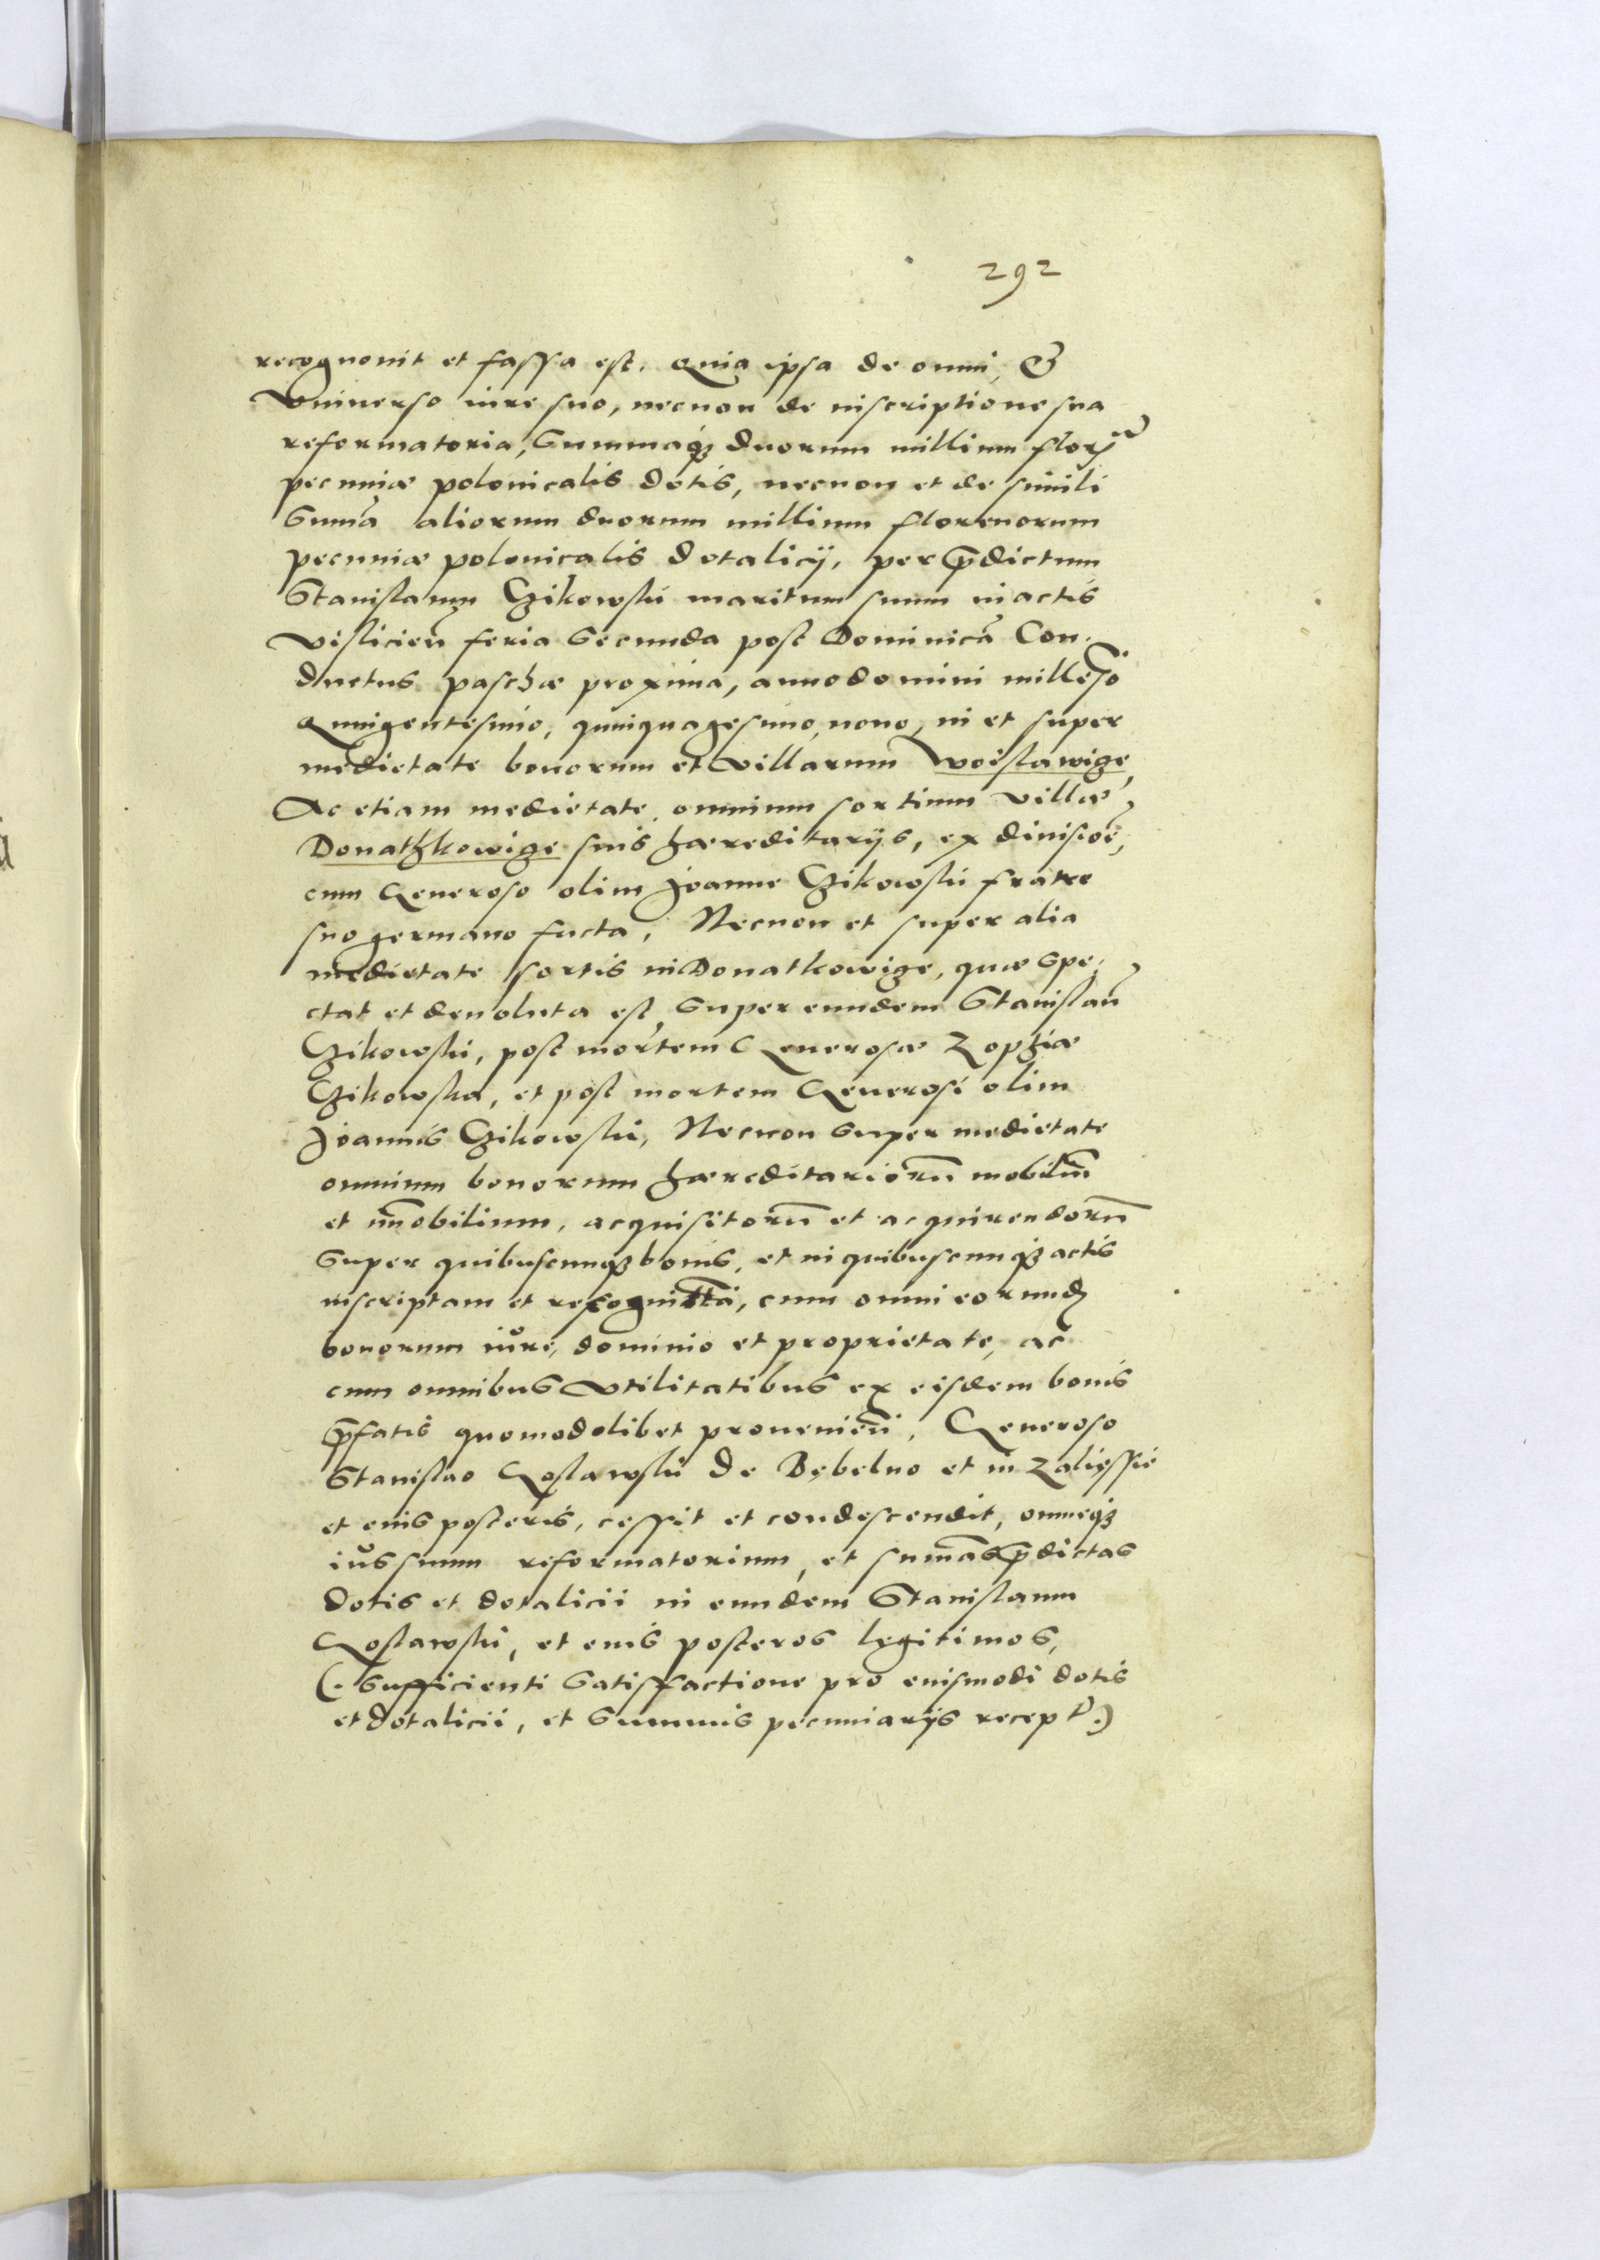 292
recognouit et fassa est, Quia ipsa de omni, &
Vniuerso iure suo, necnon de inscriptione sua
reformatoria, Summaqꝫ duorum millium flor
pecuniæ polonicalis dotis, necnon et de simili
Sum̃a aliorum duorum millium florenorum
pecuniæ polonicalis dotalicij, per p̃dictum
Stanislaum Czikowski maritum suum in actis
Vislicieñ feria Secunda post Dominicã Con-
ductus paschæ proxima, anno domini milleᷤo
Quingentesimo, quinquagesimo, nono, in et super
medietate bonorum et villarum Woislawige,
Ac etiam medietate omnium sortium villæ
Donathkowige suis hæreditarijs, ex diuisioẽ,
cum Generoso olim Joanne Czikowski fratre
suo germano facta, Necnon et super alia
medietate sortis in Donatkowige, quæ spe-
ctat et deuoluta est, super eundem Stanislaũ
Czikowski, post mortem Generosæ Zophiæ
Czikowska, et post mortem Generosi olim
Joannis Czikowski, Necnon super medietate
omnium bonorum hæreditariorũ mobiliũ
et im̃obilium, acquisitorũ et acquirendorũ
super quibuscunqꝫ bonis, et in quibuscunqꝫ actis
inscriptam et recognittã, cum omni eorund
bonorum iure, dominio et proprietate, ac
cum omnibus vtilitatibus ex eisdem bonis
p̃fatis quomodolibet proueniẽn, Generoso
Stanislao Goslawski de Bębelno et in Zaliessie
et eius posteris, cessit et condescendit, omneqꝫ
ius suum reformatorium, et sum̃as p̃dictas
dotis et dotalicii in eundem Stanislaum
Goslawski, et eius posteros legitimos,
(. sufficienti satisfactione pro euismodi dotis
et dotalicii, et summis pecuniarijs recept .)